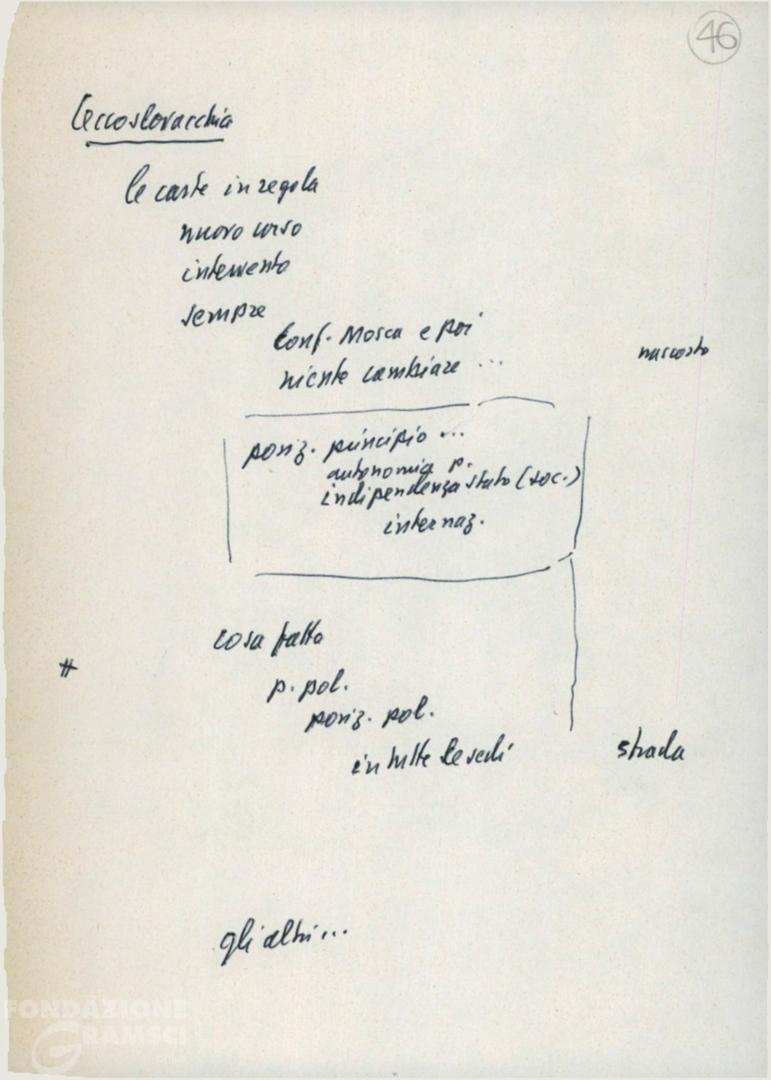 46
Cecoslovacchia
le carte in regola
nuovo corso
intervento
sempre
Conf. Mosca e poi
niente cambiare ...
nascosto
posiz. principio ...
autonomia p.
indipendenza stato (soc.)
internaz.
cosa fatto
#
p. pol.
posiz. pol.
in tutte le sedi
strada
gli altri...
FONDAZIONE
GRAMSCI